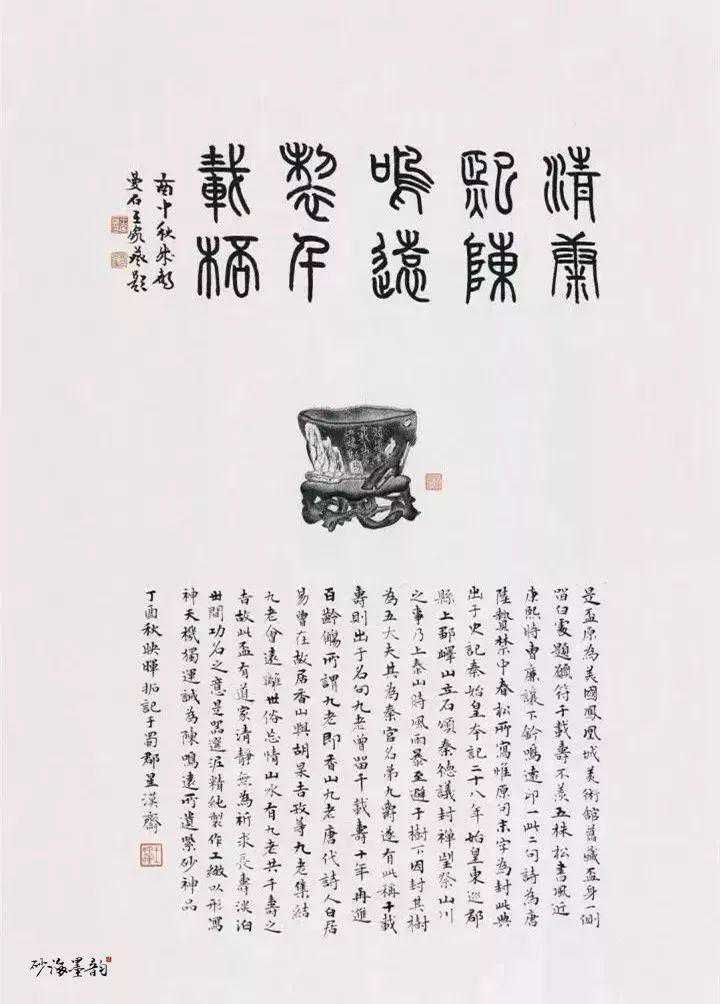 清康
熙陳
鳴遠
製千
載杯
酉中秋成都
曼石王家葵題
是盃原為美國鳳凰城美術館舊藏盃身一側
留白處題願符千載壽不羨五株松書風近
康熙時曹廉讓下鈐鳴遠印一此二句詩為唐
陸贄禁中春松所寫惟原句末字為封此典
出于史記秦始皇本記二十八年始皇東巡郡
縣上鄒嶧山立石頌秦德議封禪望祭山川
之事乃上泰山時風雨暴至避于樹下因封其樹
為五大夫其為秦官名弟九爵遂有此稱千載
壽則出于名句九老曾留千載壽十年再進
百齡觴所謂九老即香山九老唐代詩人白居
易曾在故居香山與胡杲吉玫等九老集結
九老會遠離世俗忘情山水有九老共千壽之
吉故此盃有道家清靜無為祈求長壽淡泊
世間功名之意是器選泥精純製作工緻以形寫
神天機獨運誠為陳鳴遠所遺紫砂神品
丁酉秋映暉垢記于蜀郡星漢齋
砂海墨韵